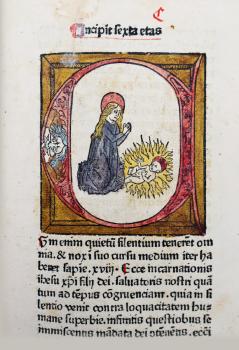 Incipit sexta etas
C
Um enim quietũ silentium teneret om
nia. & nox ī suo cursu medium iter ha
beret sapie. xviij. Ecce incarnationis
ihesu xp̄i filij dei. saluatoris nostri quā
tum ad tēpus cōgruenciant. quia in si
lentio venit contra loquacitatem hu-
mane superbie. infirmis questiobus se